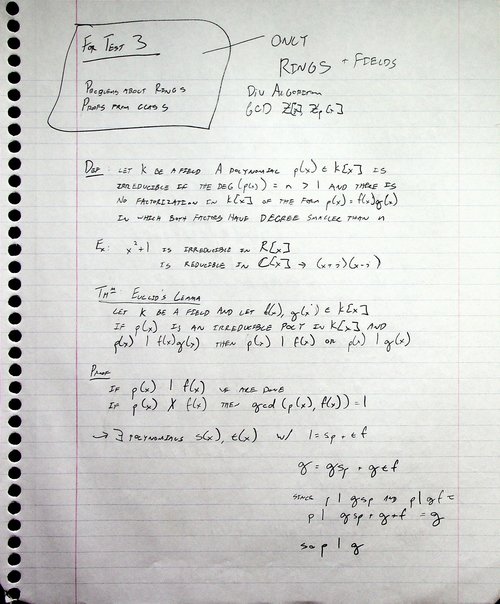 For Test 3
ONLY
RINGS + FIELDS
Problems about Rings
Div Algorithm
Proofs from class
GCD Z[x], Zp[x]
Def: Let K be a field A polynomial p(x) ∈ K[x] is
irreducible if the deg(p(x)) = n > 1 and there is
no factorization in K[x] of the form p(x) = f(x)g(x)
in which both factors have degree smaller than n
Ex: x²+1 is irreducible in R[x]
is reducible in C[x] → (x+i)(x-i)
Thm Euclid's Lemma
Let K be a field and let f(x), g(x) ∈ K[x]
If p(x) is an irreducible poly in K[x] and
p(x) | f(x)g(x) then p(x) | f(x) or p(x) | g(x)
Proof
If p(x) | f(x) we are done
If p(x) ∤ f(x) then gcd(p(x), f(x)) = 1
→ ∃ polynomials s(x), t(x) w/ 1 = sp + tf
g = gsp + gtf
since p | gsp and p | gft
p | gsp + gtf = g
so p | g